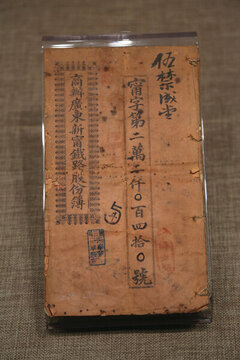 伍禁成堂
甯字第二萬二仟〇百四拾〇號
商辦廣東新甯鐵路股份簿